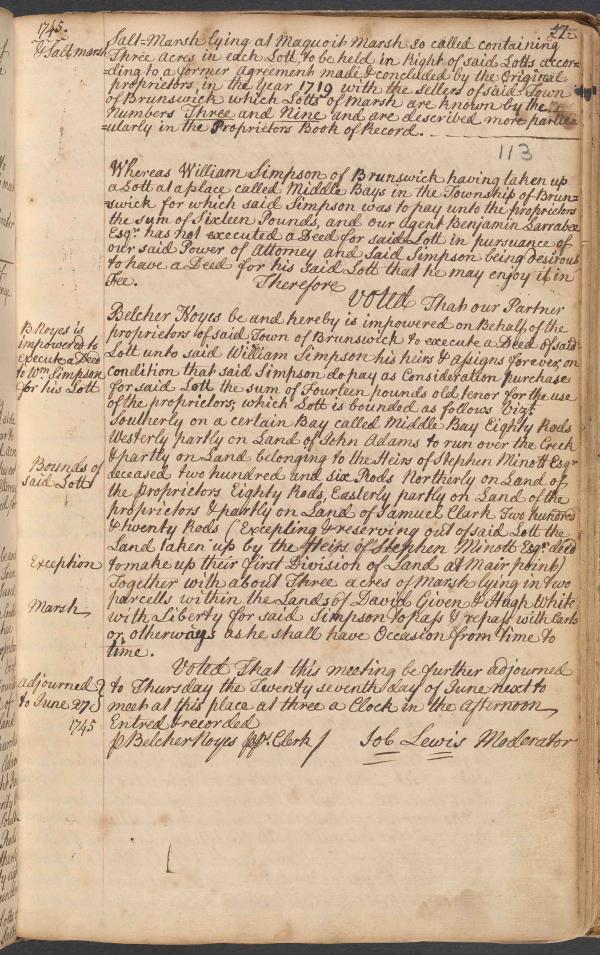 1745.
57.
& Salt marsh
Salt=Marsh lying at Maquoit Marsh so called containing
Three acres in each Lott, to be held in Right of said Lotts accor=
=ding to a former agreement made & concluded by the Original
proprietors, in the Year 1719 with the sellers of said Town
of Brunswick which Lotts of Marsh are known by the
Numbers Three and Nine and are described more partic=
=ularly in the Proprietors Book of Record.
113
Whereas William Simpson of Brunswick having taken up
a Lott at a place called Middle Bays in the Township of Brun=
=swick for which said Simpson was to pay unto the proprietors
the sum of Sixteen Pounds, and our Agent Benjamin Larrabee
Esqr. has not executed a Deed for said Lott in pursuance of
our said Power of Attorney and said Simpson being desirous
to have a Deed for his said Lott that he may enjoy it in
Fee. Therefore
Voted That our Partner
B Noyes is
impowered to
execute a Deed
to Wm Simpson
for his Lott
Belcher Noyes be and hereby is impowered on Behalf of the
proprietors of said Town of Brunswick to execute a Deed of said
Lott unto said William Simpson his heirs & assigns forever, on
condition that said Simpson do pay as Consideration purchase
for said Lott the sum of Fourteen pounds old tenor for the use
of the proprietors, which Lott is bounded as follows Vizt.
Southerly on a certain Bay called Middle Bay Eighty Rods
Westerly partly on Land of John Adams to run over the Creek
Bounds of
said Lott
& partly on Land belonging to the Heirs of Stephen Minott Esqr
deceased two hundred and six Rods Northerly on Land of
the Proprietors Eighty Rods, Easterly partly on Land of the
proprietors & partly on Land of Samuel Clark Two hundred
& twenty Rods (Excepting & reserving out of said Lott the
Exception
Land taken up by the Heirs of Stephen Minott Esqr. deced
to make up their first Division of Land at Mair point)
Together with about Three acres of Marsh lying in two
Marsh
parcells within the Lands of David Given & Hugh White
with Liberty for said Simpson to pass & repass with Carts
or otherways as he shall have Occasion from time to
time.
Voted That this meeting be further adjourned
adjourned
to June 27
1745
to Thursday the Twenty seventh day of June next to
meet at this place at three a Clock in the afternoon
Entred & recorded
p Belcher Noyes pprs. Clerk
Job Lewis Moderator